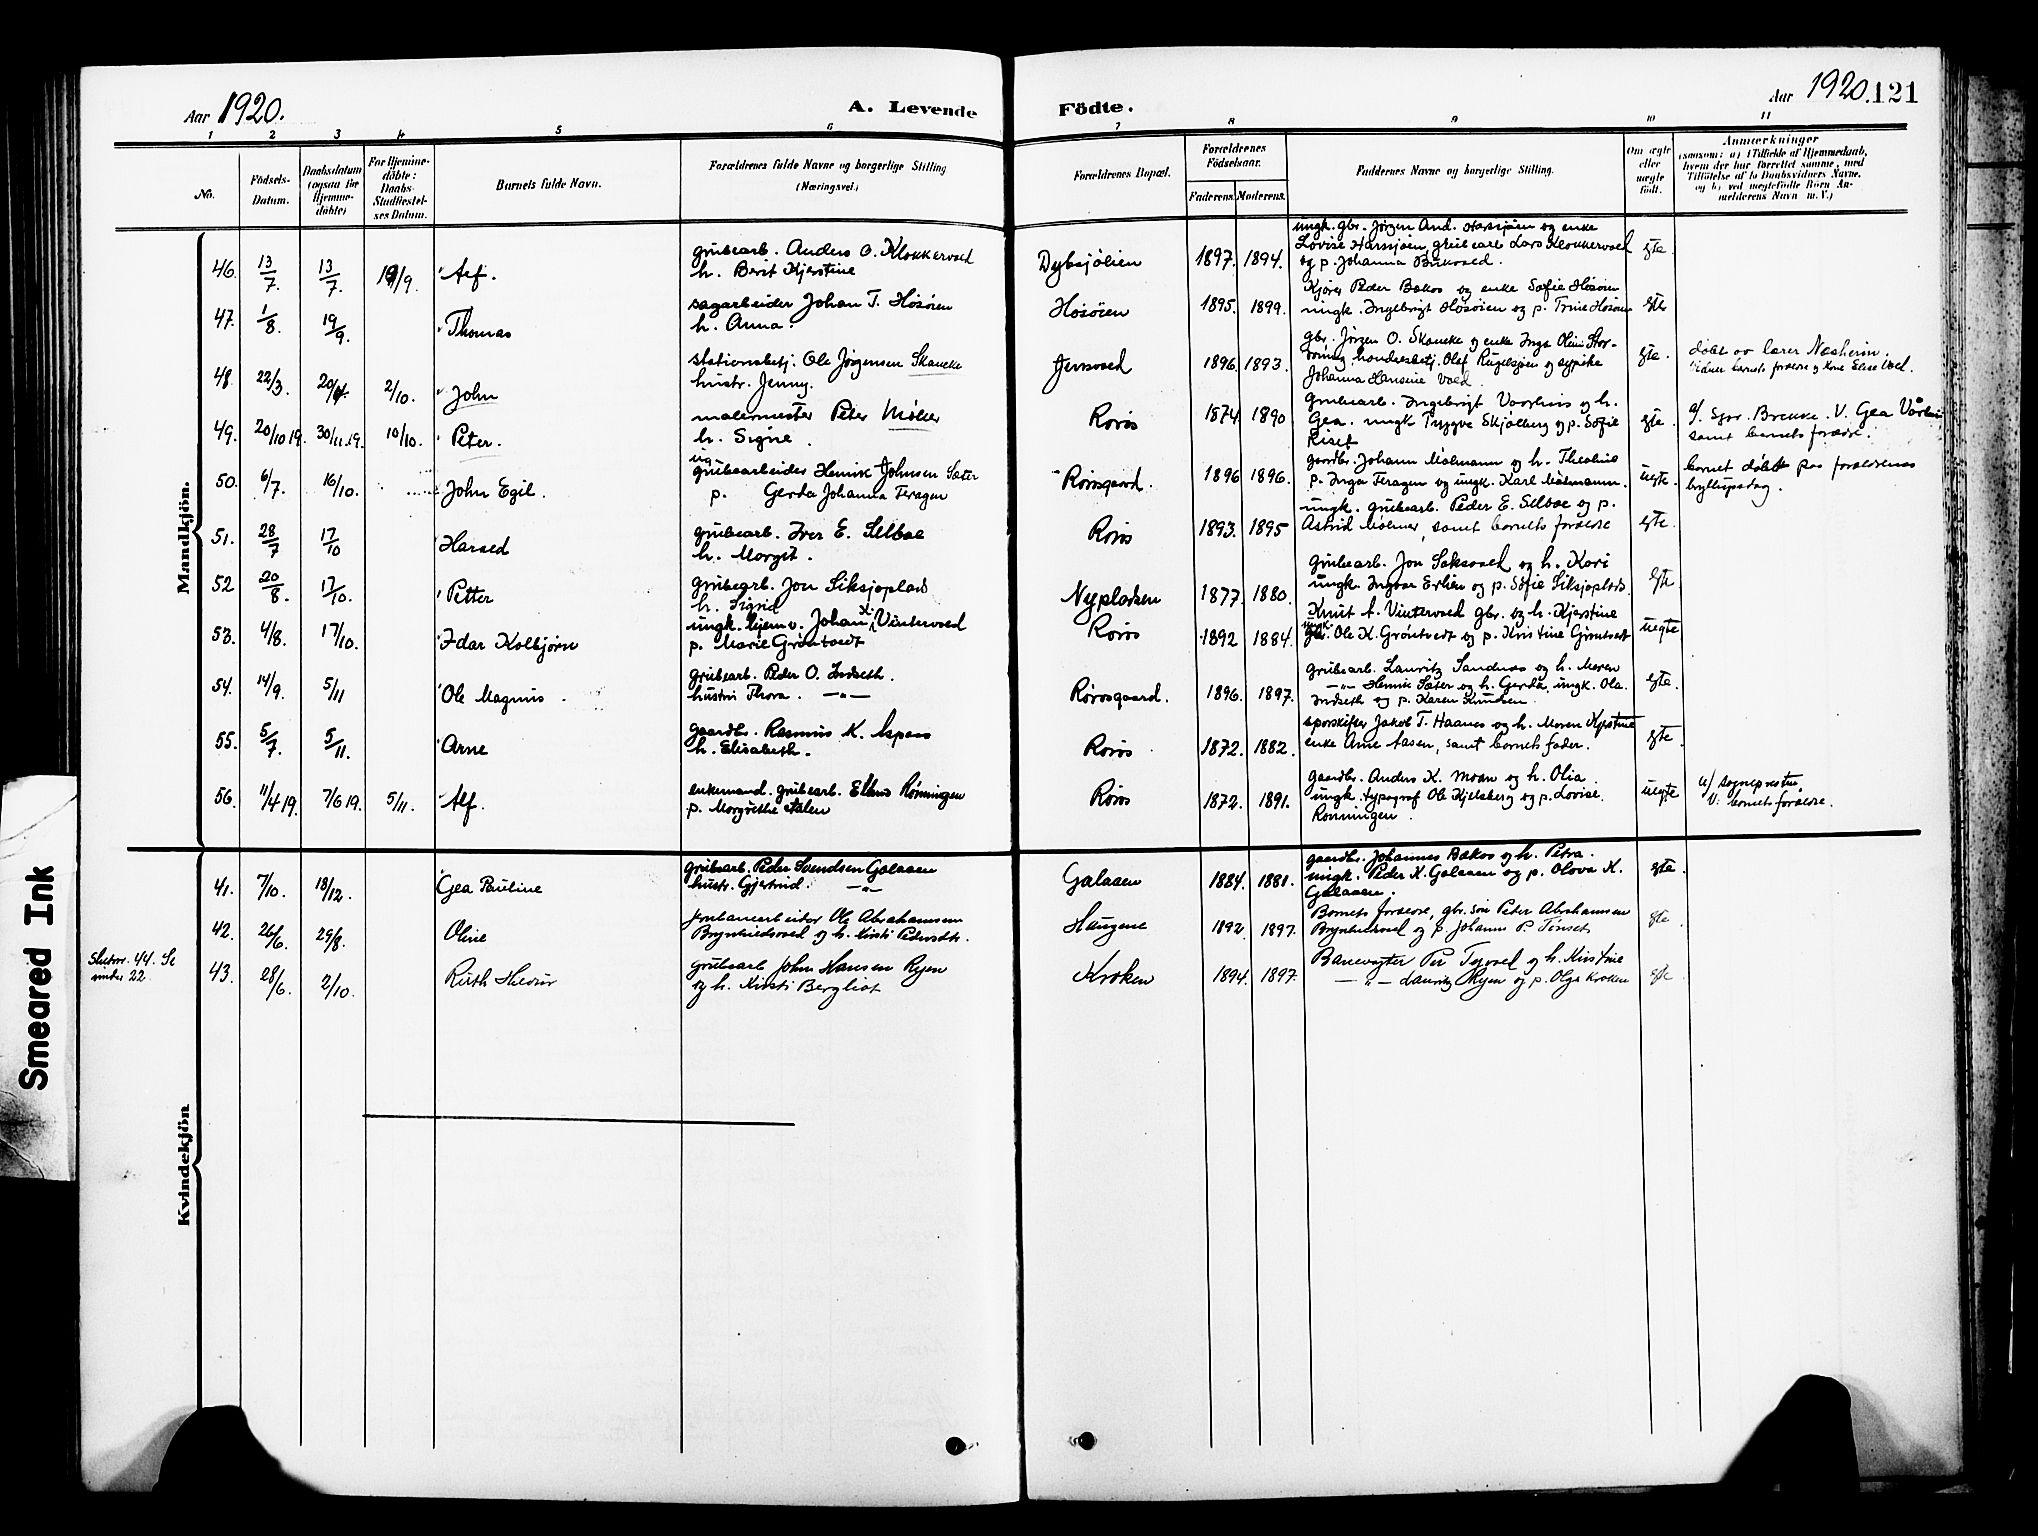 Aar 1920.
A. Levende
Födte.
Aar 1920. 121
1 2 3 4 5 6 7 8 9 10 11
No.
Födsels-
Datum.
Daabsdatum
(ogsaa for
Hjemme-
döbte)
For Hjemme-
döbte:
Daabs-
Stadfæstel-
ses Datum.
Barnets fulde Navn.
Forældrenes fulde Navne og borgerlige Stilling
(Næringsvei.)
Forældrenes Bopæl.
Forældrenes
Födselsaar.
Faderens. Moderens.
Faddernes Navne og borgerlige Stilling.
Om ægte
eller
uægte
födt.
Anmærkninger
(saasom: a) i Tilfælde af Hjemmedaab,
hvem der har forrettet samme, med
Tilföielse af to Daabsvidners Navne,
og b) ved uægtefödte Börn An-
melderens Navn m. V.)
Mandkjön.
46. 13/7 13/7. 19/9. Alf.
grubearb. Anders O. Klokkervold
h. Berit Kjerstine
Dybsjølien 1897. 1894.
ungk. gbr. Jørgen And. Harsjøen og enke
Lovise Harsjøen, grubearb Lars Klokkervold
og p. Johanna Bukvold.
egte.
47. 1/8. 19/9. Thomas
sagarbeider Johan T. Hosøien
h. Anna.
Hosøien 1895. 1899.
Kjører Peder Bakos og enke Sofie Hosøien
ungk. Ingebrigt Hosøien og p. Trine Hosøien
egte
48. 22/3. 20/4. 2/10. John
stationsbetj. Ole Jørgensen Skancke
hustr. Jenny.
Jensvold 1896. 1893.
gbr. Jørgen O. Skancke og enke Inga Oline Stor-
røning, handelsbetj. Olaf Rugelsjøen og sypike
Johanna Hansine Vold.
egte.
døbt av lærer Næsheim.
Vidner barnets forældre og Lone Elise Vold.
49. 20/10 19. 30/11.19. 10/10. Peter.
malermester Peter Møller
h. Signe.
Røros 1874. 1890
grubearb. Ingebrigt Vaarhus og h.
Gea. ungk Trygve Skjølberg og p. Sofie
Riset
egte.
a/ Spr. Brekke. V. Gea Vårhus
samt barnets forældre.
50. 6/7. 16/10. John Egil.
ug
grubearbeider Henrik Johnsen Sæter
p. Gerda Johanna Feragen
Rørosgaard. 1896 1896.
gaardbr. Johann Molmann og h. Theoline
p. Inga Feragen og ungk. Karl Molmann.
uegte.
barnet døbt paa forældrenes
bryllupsdag.
51. 28/7 17/10 Harald
grubearb. Iver E. Selboe
h. Margit.
Røros 1893. 1895
ungk. grubearb. Peder E. Selboe og p.
Astrid Molmer, samt barnets forældre
egte.
52 20/8. 17/10. Petter
grubearb. Jon Siksjøplads
h. Sigrid
Nypladsen 1877. 1880.
grubearb. Jon Saksvold og h. Kari
ungk. Ingvar Erlien og p. Sofie Siksjøplads.
egte
53. 4/8. 17/10. Idar Kolbjørn
ungk. hjemv. Johan K. Vintervold
p. Marie Grøntvedt
Røros 1892 1884.
Knut A. Vintervold gbr. og h. Kjerstine
ungk.
gbr. Ole K. Grøntvedt og p. Kristine Grøntvedt
uegte
54. 14/9. 5/11 Ole Magnus.
grubearb. Peder O. Indseth.
hustru Thora. —"—
Rørosgaard. 1896. 1897.
grubearb. Lauritz Sandnes og h. Maren
—"— Henrik Sæter og h. Gerda, ungk. Ola.
Indseth og p. Karen Knudsen.
egte.
55. 5/7. 5/11. Arne
gaardb. Rasmus K. Aspaas
h. Elisabeth.
Røros 1872. 1882.
sporskifter Jakob T. Haanes og h. Maren Kjerstine
enke Ane Aasen, samt barnets fader.
egte.
56. 11/4 19. 7/6 19. 5/11. Alf.
enkemand. grubearb. Elling Rønningen
p. Margrethe Aalen
Røros 1872. 1891.
gaardbr. Anders K. Moan og h. Olia
ungk. typograf Ole Kjelsberg og p. Lovise
Rønningen.
uegte
a/ sogneprestn.
V. barnets forældre.
Kvindekjön
41. 7/10. 18/12. Gea Pauline
grubearb. Peder Svendsen Galaaen
hustr. Gjertrud. —"—
Galaaen 1884. 1881.
gaardbr. Johannes Bakos og h. Petra.
ungk. Peder K. Galaaen og p. Olava K.
Galaaen.
egte.
42. 26/6. 29/8. Oline
grubearbeider Ole Abrahamsen
Bryntriedsvold og h. Kirsti Pedersdtr.
Haugene 1892. 1897.
Barnets forældre, gbr. søn Peter Abrahamsen
og p. Johanna P. Tønset
egte
Sluttnr. 44. Se
under 22
43. 28/6. 2/10. Ruth
grubearb John Hansen Ryen
og h. Kirsti Bergliot
Kroken 1894. 1897.
Banevogter Per og h. Kirstine
—"— Lauritz Ryen og p. Olga Kroken
egte
Smeared Ink